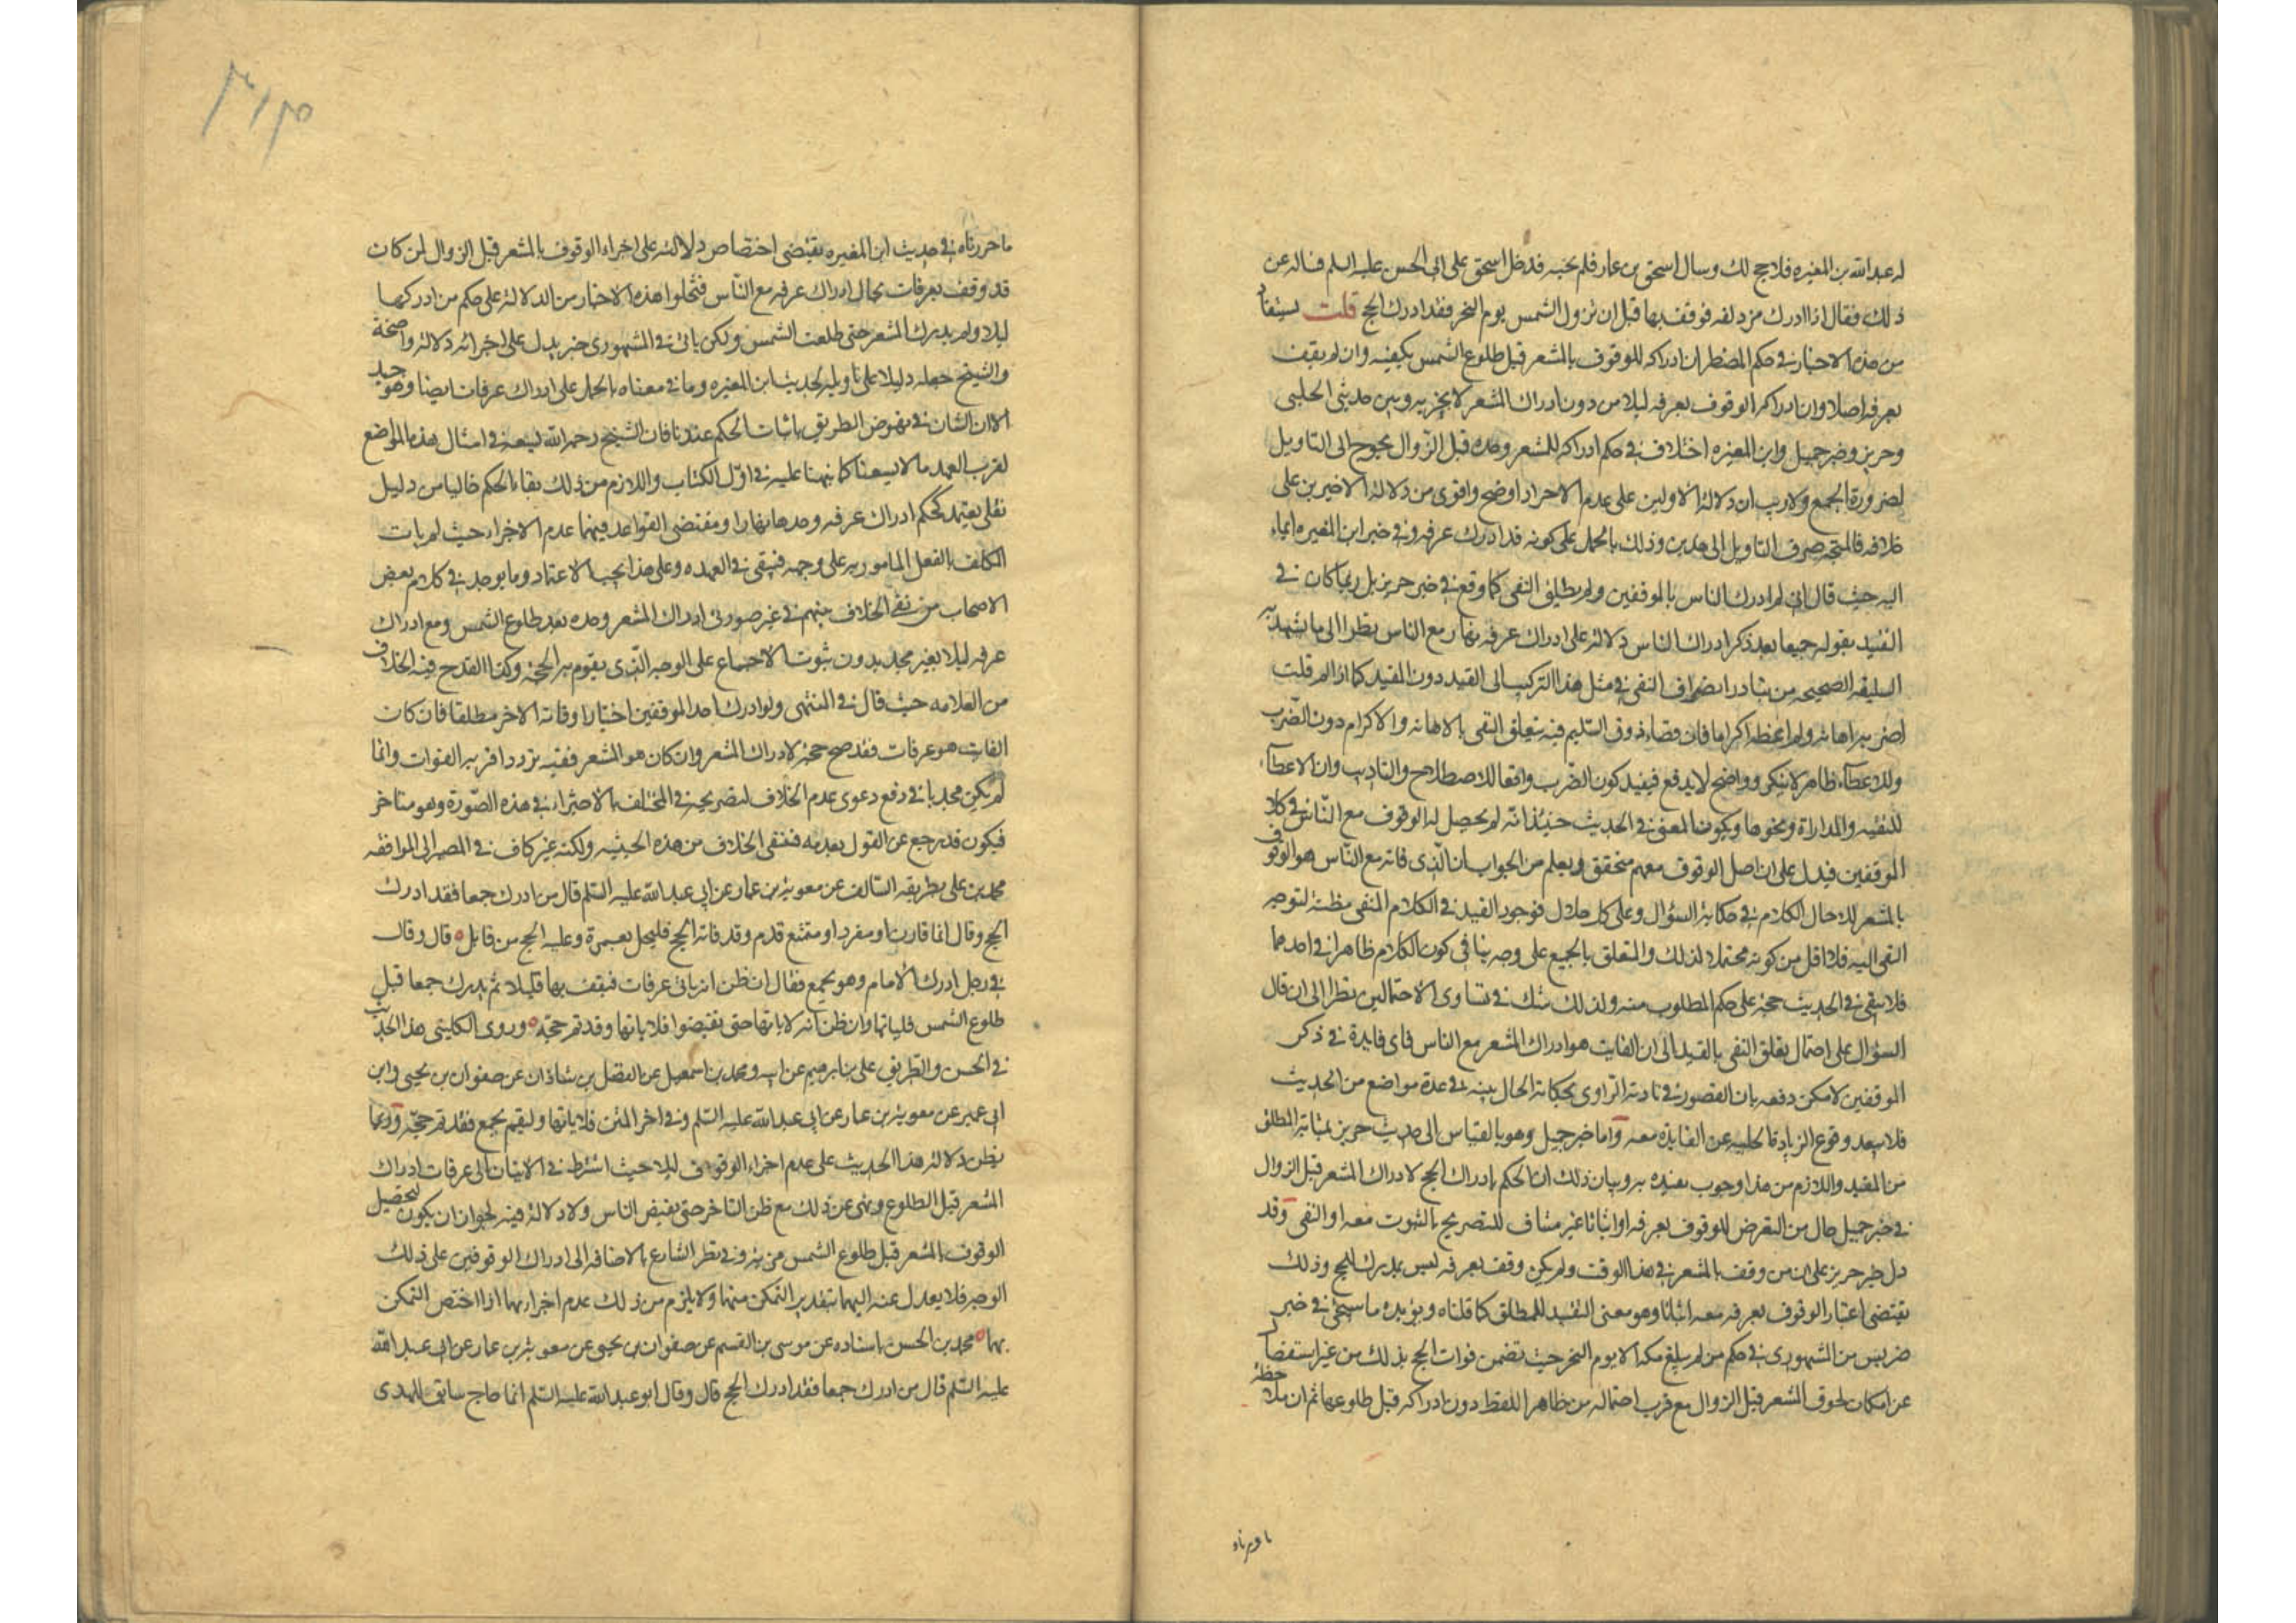 له عبد الله بن المغيره فلا حج لك وسال اسحق بن عمار فلم يجبه فدخل اسحق على ابي الحسن عليه السلم فساله عن
ذلك فقال اذا ادرك مزدلفه فوقف بها قبل ان تزول الشمس يوم النحر فقد ادرك الحج قلت يستفاد
من هذه الاخبار في حكم المضطر ان ادراكه للوقوف بالمشعر قبل طلوع الشمس يكفيه وان لم يقف
بعرفه اصلا وان ادراكه الوقوف بعرفه ليلا من دون ادراك المشعر لا يجزيه وبين حديثي الحلبي
وحريز وخبر جميل وابن المغيره اختلاف في حكم ادراكه للمشعر وحده قبل الزوال يحوج الى التاويل
لضرورة الجمع ولا ريب ان دلالة الاولين على عدم الاجزاء اوضح واقوى من دلالة الاخيرين على
خلافه فالمتجه صرف التاويل الى هذين وذلك بالحمل على كونه قد ادرك عرفه وفي خبر ابن المغيره ايماء
اليه حيث قال اني لم ادرك الناس بالموقفين ولم يطلق النفي كما وقع في خبر حريز بل ربما كان في
التقييد بقوله جميعا بعد ذكر ادراك الناس دلالة على ادراك عرفه نهارا مع الناس نظرا الى ما تشهد به
السليقه الصحيحه من تبادر انصراف النفي في مثل هذا التركيب الى القيد دون المقيد كما اذا قلت لم
اضربه اهانة ولم اعطه اكراما فان قضاء ذوق السليم فيه بتعلق النفي بالاهانه والاكرام دون الضرب
والاعطاء ظاهر لا ينكر وواضح لا يدفع فيفيد كون الضرب واقعا للاصطلاح والتاديب وان الاعطاء
للتقيه والمداراة ونحوها ويكون المعنى في الحديث حينئذ انه لم يحصل له الوقوف مع الناس في كلا
الموقفين فيدل على ان اصل الوقوف معهم متحقق ويعلم من الجواب ان الذي فاته مع الناس هو الوقوف
بالمشعر لا حال الكلام في حكاية السؤال وعلى كل حال فوجود القيد في الكلام المنفي مظنة لتوجه
النفي اليه فلا اقل من كونه محتملا لذلك والتعلق بالجميع على وجه ينافي كون الكلام ظاهرا في احدهما
فلا يبقى في الحديث حجة على حكم المطلوب منه ولذلك شك في تساوي الاحتمالين نظرا الى ان قال
السؤال على احتمال تعلق النفي بالقيد الى ان الفايت هو ادراك المشعر مع الناس فاي فايدة في ذكر
الموقفين لامكن دفعه بان القصور في تادية الراوي لحكاية الحال بينه في عدة مواضع من الحديث
فلا يبعد وقوع الزيادة الخليه عن الفايدة معه واما خبر جميل وهو بالقياس الى حديث حريز بمثابة المطلق
من المقيد واللازم من هذا وجوب تقييده به وبيان ذلك ان الحكم بادراك الحج لادراك المشعر قبل الزوال
في خبر جميل خال من التعرض للوقوف بعرفه اواثباتا غير مناف للتصريح بالثبوت معه او النفي وقد
دل خبر حريز على ان من وقف بالمشعر في هذا الوقت ولم يكن وقف بعرفه ليس بمدرك للحج وذلك
يقتضي اعتبار الوقوف بعرفه معه اثباتا وهو معنى التقييد للمطلق كما قلناه ويؤيده ما سيجئ في خبر
ضريس من المشهوري في حكم من لم يبلغ مكه الا يوم النحر حيث تضمن فوات الحج بذلك من غير استفصال
عن امكان لحوق المشعر قبل الزوال مع قرب احتماله من ظاهر اللفظ دون ادراكه قبل طلوعها ثم ان ملاحظة
ما حررناه
ما حررناه في حديث ابن المغيره يقتضي اختصاص دلالته على اجزاء الوقوف بالمشعر قبل الزوال لمن كان
قد وقف بعرفات بحال ادراك عرفه مع الناس فتخلوا هذه الاخبار من الدلالة على حكم من ادركها
ليلا ولم يدرك المشعر حتى طلعت الشمس ولكن ياتي في المشهوري خبر يدل على اجزائه دلالة واضحة
والشيخ جعله دليلا على تاويله لحديث ابن المغيره وما في معناه بالحمل على ادراك عرفات ايضا وهو جيد
الا ان الشان في نهوض الطريق باثبات الحكم عندنا فان الشيخ رحمه الله يسعه في امثال هذه المواضع
لقرب العهد ما لا يسعنا كما نبهنا عليه في اول الكتاب واللازم من ذلك بقاء الحكم خاليا من دليل
نقلي يعتمد كحكم ادراك عرفه وحدها نهارا ومقتضى القواعد فيهما عدم الاجزاء حيث لم يات
المكلف بالفعل المامور به على وجهه فيبقى في العهده وعلى هذا يجب الاعتماد وما يوجد في كلام بعض
الاصحاب من نفي الخلاف بينهم في غير صورتي ادراك المشعر وحده بعد طلوع الشمس ومع ادراك
عرفه ليلا بغير مجد بدون ثبوت الاجماع على الوجه الذي يقوم به الحجة وكذا القدح فيه الخلاف
من العلامه حيث قال في المنتهى ولو ادرك احد الموقفين اختيارا وفاته الاخر مطلقا فان كان
الفايت هو عرفات فقد صح حجه لادراك المشعر وان كان هو المشعر ففيه تردد اقربه الفوات وانما
لم يكن مجديا في دفع دعوى عدم الخلاف لتصريحه في المختلف بالاجتزاء في هذه الصورة وهو متاخر
فيكون قد رجع عن القول بعدمه فينتفى الخلاف من هذه الحيثيه ولكنه غير كاف في المصير الى الموافقه
محمد بن علي بطريقه السالف عن معوية بن عمار عن ابي عبد الله عليه السلم قال من ادرك جمعا فقد ادرك
الحج وقال ايما قارن او مفرد او متمتع قدم وقد فاته الحج فليحل بعمرة وعليه الحج من قابل ه قال وقال
في رجل ادرك الامام وهو بجمع فقال ان ظن انه ياتي عرفات فيقف بها قليلا ثم يدرك جمعا قبل
طلوع الشمس فلياتها وان ظن انه لا ياتها حتى يفيضوا فلا ياتها وقد تم حجه ه وروى الكليني هذا الحديث
في الحسن والطريق علي بن ابرهيم عن ابيه ومحمد بن اسمعيل عن الفضل بن شاذان عن صفوان بن يحيى وابن
ابي عمير عن معوية بن عمار عن ابي عبد الله عليه السلم وفي اخر المتن فلا ياتها وليقم بجمع فقد تم حجه وربما
يظن دلالة هذا الحديث على عدم اجزاء الوقوف ليلا حيث اشترط في الاتيان الى عرفات ادراك
المشعر قبل الطلوع ونهى عن ذلك مع ظن التاخر حتى يفيض الناس ولا دلالة فيه لجواز ان يكون لتحصيل
الوقوف بالمشعر قبل طلوع الشمس مزية في نظر الشارع بالاضافه الى ادراك الوقوفين على ذلك
الوجه فلا يعدل عنه اليهما بتقدير التمكن منهما ولا يلزم من ذلك عدم اجزاءهما اذا اختص التمكن
بهما ه محمد بن الحسن باسناده عن موسى بن القسم عن صفوان بن يحيى عن معوية بن عمار عن ابي عبد الله
عليه السلم قال من ادرك جمعا فقد ادرك الحج قال وقال ابو عبد الله عليه السلم ايما حاج سائق للهدى